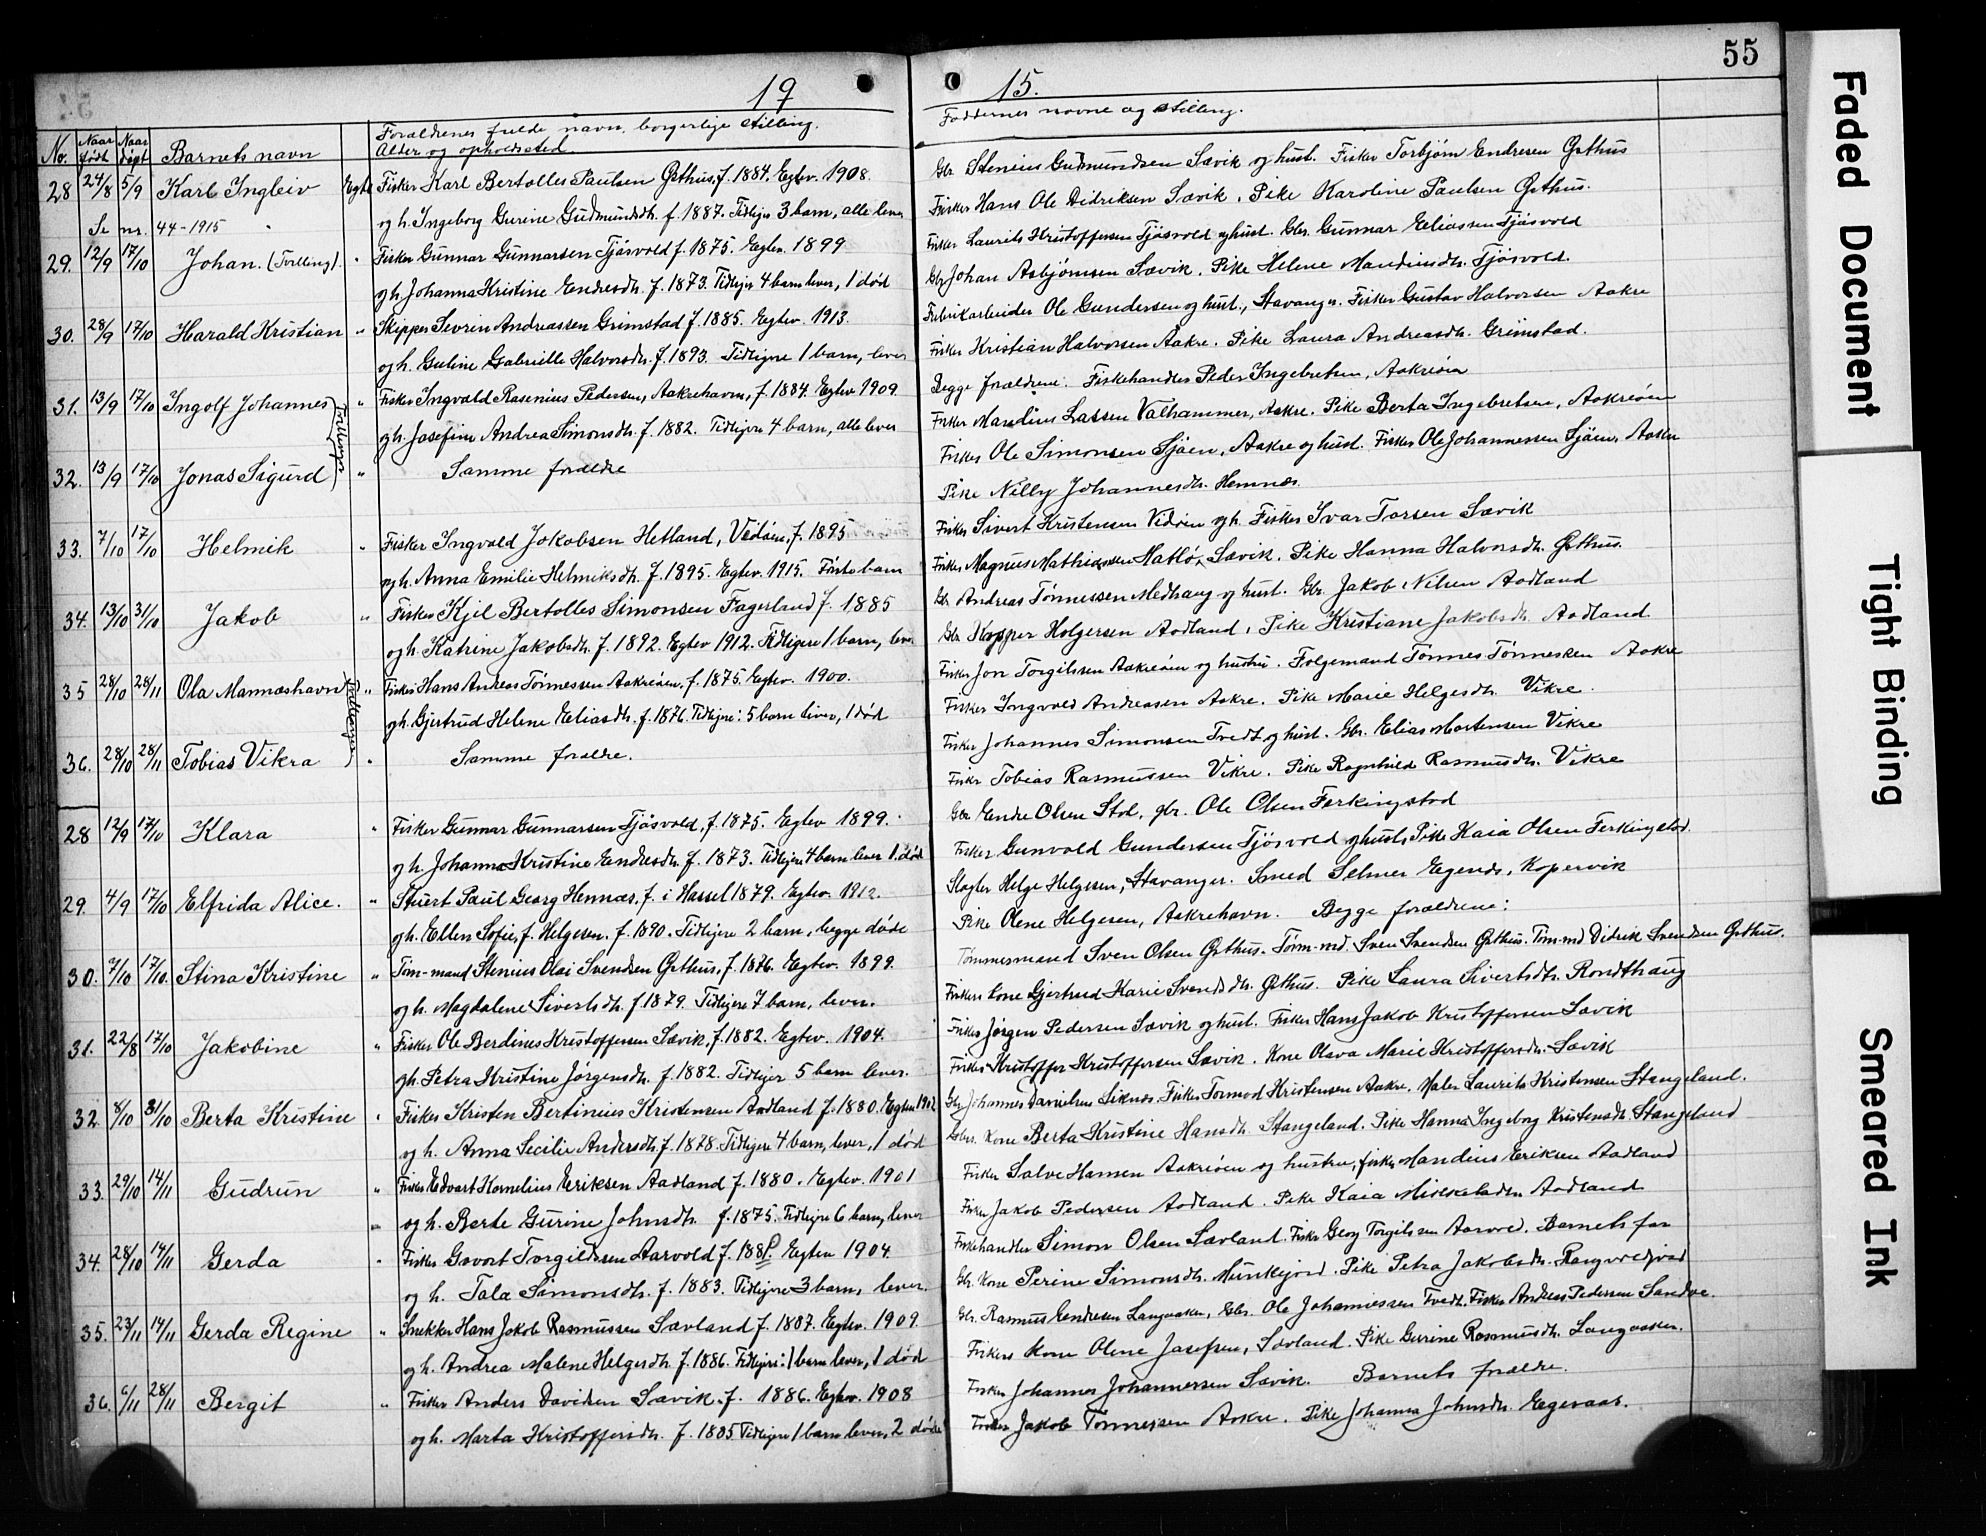 55
19
15.
No.
Naar født
Naar døpt
Barnets navn
Forældrenes fulde navn, borgerlige stilling.
Alder og opholdssted
Faddernes navne og stilling.
28 24/8 5/9 Karl Ingleiv Egte Fisker Karl Bertolles Paulsen Grthus, f. 1884. Egtev. 1908.
Gbr. Stenius Gudmundsen Sævik og hust. Fisker Torbjørn Endresen Grthus
Se nr. 44-1915 og h. Ingeborg Gurine Gudmundsdtr. f. 1887. Tidligere 3 barn, alle lever
Fisker Hans Ole Didriksen Sævik. Pike Karoline Paulsen Grthus.
29. 12/9 17/10 Johan. (Tvilling). " Fisker Gunnar Gunnarsen Tjøsvold f. 1875. Egtev. 1899
Fisker Laurits Kristoffersen Tjøsvold og hust. Gbr. Gunnar Eliassen Tjøsvold
og h. Johanna Kristine Endresdtr. f. 1873. Tidligere 4 barn lever, 1 død
Gbr Johan Asbjørnsen Sævik. Pike Helene Mandiusdtr. Tjøsvold.
30. 28/9 17/10 Harald Kristian " Skipper Sevrin Andreassen Grimstad f. 1885. Egtev. 1913.
Fabrikarbeider Ole Gundersen og hust., Stavanger. Fisker Gustav Halvorsen Aakre
og h. Guline Gabrielle Halvorsdtr. f. 1893. Tidligere 1 barn, lever
Fisker Kristian Halvorsen Aakre. Pike Laura Andreasdtr. Grimstad.
31. 13/9 17/10 Ingolf Johannes Tvillinger " Fisker Ingvald Rasenius Pedersen, Aakrehavn, f. 1884. Egtev 1909
Begge forældrene. Fiskehandler Peder Ingebretsen, Aakreøen
og h. Josefine Andrea Simonsdtr. f. 1882. Tidligere 4 barn, alle lever
Fisker Mandius Lassen Valhammer, Aakre. Pike Berta Ingebretsen, Aakreøen
32. 13/9 17/10 Jonas Sigurd " Samme forældre
Fisker Ole Simonsen Sjøen, Aakre og hust. Fisker Ole Johannessen Sjøen, Aakre
Pike Nelly Johannesdtr. Hemnæs.
33. 7/10 17/10 Helmik " Fisker Ingvald Jakobsen Hetland, Vedøen, f. 1895
Fisker Sivert Kristensen Vidøen og h. Fisker Ivar Torsen Sævik
og h. Anna Emilie Helmiksdtr. f. 1895. Egtev. 1915. Første barn
Fisker Magnus Mathiassen Matlø, Sævik. Pike Hanna Halvorsdtr. Grthus.
34. 13/10 31/10 Jakob " Fisker Kjel Bertolles Simonsen Fagerland f. 1885
Gbr Andreas Tønnessen Medhaug og hust. Gbr. Jakob Nilsen Aadland
og h. Katrine Jakobsdtr. f. 1892. Egtev 1912. Tidligere 1 barn, lever
Gbr. Kasper Holgersen Aadland, Pike Kristiane Jakobsdtr. Aadland
35 28/10 28/11 Ola Mannæshavn Tvillinger " Fisker Hans Andreas Tønnessen Aakreøen. f. 1875. Egtev. 1900.
Fisker Jon Torgilssen Aakreøen og hustru. Folgemand Tønnes Tønnessen Aakre
og h. Gjertrud Helene Eliasdtr. f. 1876. Tidligere: 5 barn lever, 1 død
Fisker Ingvald Andreasen Aakre. Pike Marie Helgesdtr. Vikre.
36. 28/10 28/11 Tobias Vikra " Samme foreldre.
Fisker Johannes Simonsen Tvedt og hust. Gbr. Elias Mortensen Vikre
Fisker Tobias Rasmussen Vikre. Pike Ragnhild Rasmusdtr. Vikre
28 12/9 17/10 Klara " Fisker Gunnar Gunnarsen Tjøsvold, f. 1875. Egtev 1899.
Gbr Endre Olsen Stol, gbr. Ole Olsen Ferkingstad
og h. Johanna Kristine Endresdtr. f. 1873. Tidligere 4 barn lever 1 død
Fisker Gunvald Gundersen Tjøsvold og hust, Pike Kaia Olsen Ferkingstad.
29. 4/9 17/10 Elfrida Alice. " Stuert Paul Georg Hemnæs, f. i Hassel 1879. Egtev. 1912.
Slagter Helge Helgesen, Stavanger. Smed Selmer Egends, Kopervik
og h. Ellen Sofie, f. Helgesen. f. 1890. Tidligere 2 barn, begge døde
Pike Olene Helgesen, Aakrehavn. Begge forældrene:
30. 7/10 17/10. Stina Kristine " Tøm-mand Stenius Olai Svendsen Grthus, f. 1876. Egtev. 1899.
Tømmermand Sven Olsen Grthus. Tøm-md. Sven Svendsen Grthus. Tøm-md Didrik Svendsen Grthus.
og h. Magdalene Sivertsdtr. f 1879. Tidligere 7 barn, lever.
Fiskers kone Gjertrud Karie Svendsdtr. Grthus. Pike Laura Sivertsdtr. Rondthaug
31. 22/8 17/10 Jakobine " Fisker Ole Berdines Kristoffersen Sævik, f. 1882. Egtev. 1904.
Fisker Jørgen Pedersen Sævik og hust. Fisker Hans Jakob Kristoffersen Sævik
og h. Petra Kristine Jørgensdtr. f. 1882. Tidligere 5 barn lever.
Fisker Kristoffer Kristoffersen Sævik. Kone Olava Marie Kristoffersdtr. Sævik
32. 8/10 31/10 Berta Kristine " Fisker Kristen Bertinius Kristensen Aadland f. 1880. Egtev 1902
Gbr Johannes Danielsen Liknæs. Fisker Tormod Kristensen Aakre. Maler Laurits Kristensen Stangeland.
og h. Anna Secilie Andersdtr. f. 1878. Tidligere 4 barn, lever, 1 død
Gbrs. Kone Berta Kristine Hansdtr. Stangeland. Pike Hanna Ingeborg Kristensdtr. Stangeland
33. 29/10 14/11 Gudrun " Fisker Edvart Kornelius Eriksen Aadland f. 1880. Egtev. 1901
Fisker Salve Hansen Aakreøen og hustru, fisker Mandius Eriksen Aadland
og h. Berte Gurine Johnsdtr. f. 1875. Tidligere 6 barn, lever
Fisker Jakob Pedersen Aadland. Pike Kaia Mikkelsden Aadland
34. 28/10 14/11 Gerda " Fisker Govort Torgilssen Aarvold f. 188 Egtev 1904
Fiskehandler Simon Olsen Sævland. Fisker Georg Torgilsen Aarvold. Barnets far
og h. Tala Simonsdtr. f. 1883. Tidligere 3 barn, lever.
Gbr. kone Perine Simonsdtr. Munkejord. Pike Petra Jakobsdtr. Rangvoldjord
35. 23/11 14/11 Gerda Regine " Snekker Hans Jakob Rasmussen Sævland f. 1887. Egtev. 1909
Gbr. Rasmus Endresen Langaaker, Gbr. Ole Johannessen Tvedt. Fisker Andreas Pedersen Sandve.
og h. Andrea Malene Helgesdtr. f. 1886. Tidligere: 1 barn lever, 1 død
Fiskers kone Olene Josefsen, Sævland. Pike Gurine Rasmusdtr. Langaaker.
36. 6/11 28/11 Bergit " Fisker Anders Davidsen Sævik. f. 1886. Egtev. 1908
Fisker Johannes Johannessen Sævik. Barnets forældre.
og h. Marta Kristoffersdtr. f. 1885 Tidligere 1 barn lever, 2 døde
Fisker Jakob Tønnessen Aakre. Pike Johanna Johnsdtr. Egevaar.
Faded Document
Tight Binding
Smeared Ink